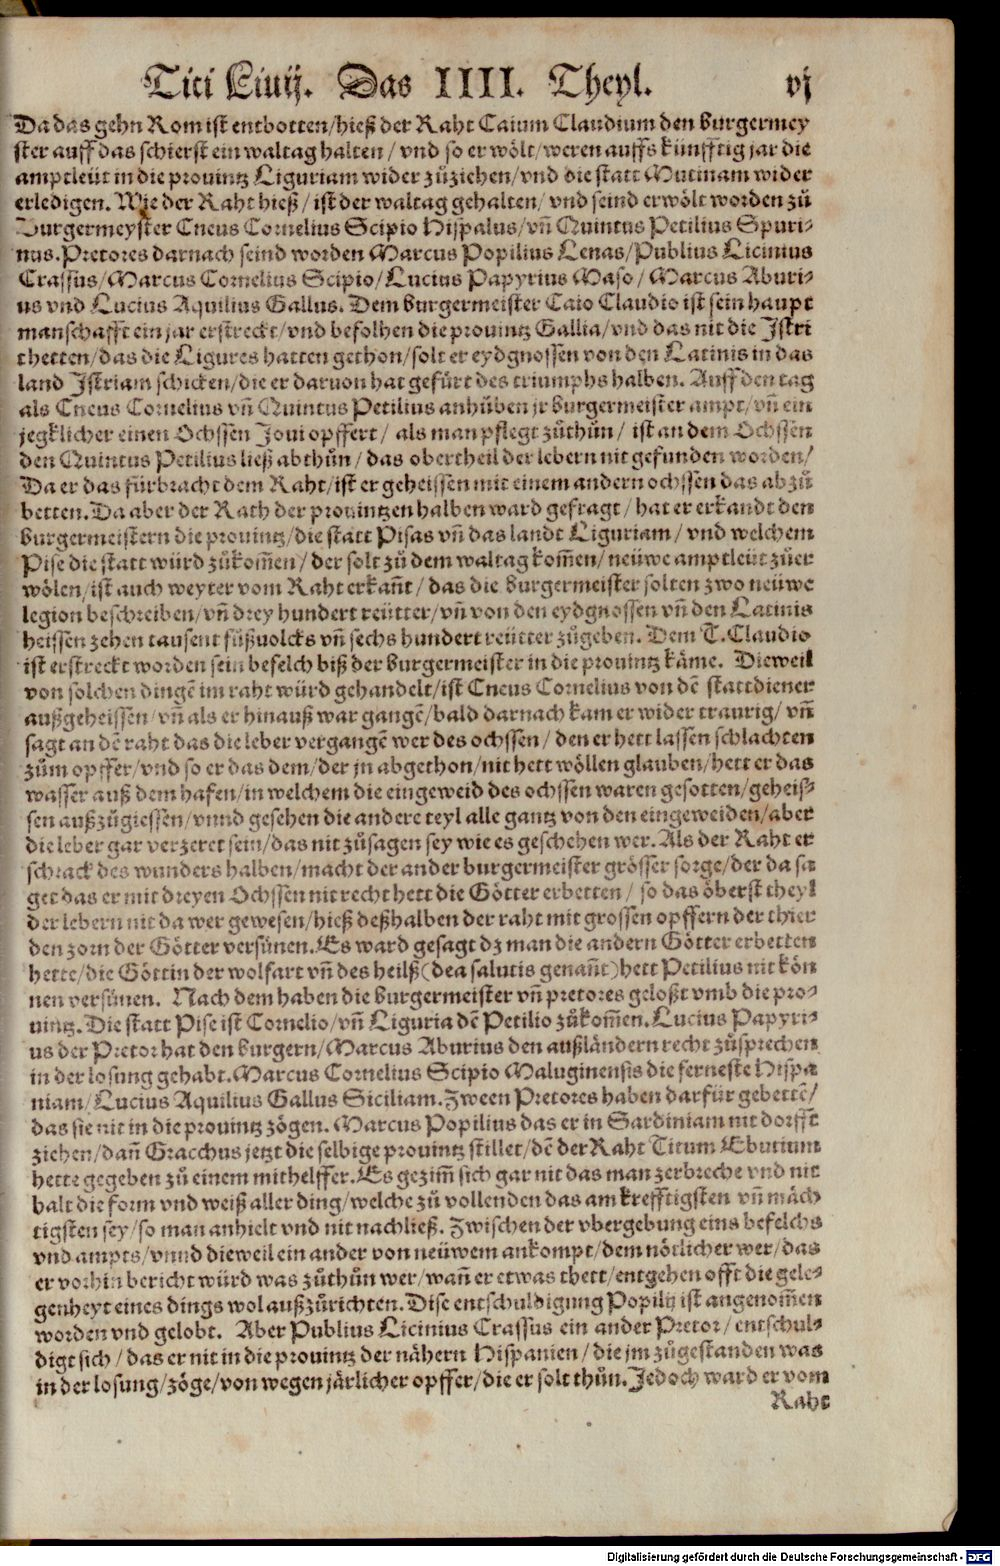 Titi Liuij. Das IIII. Theyl. vj
Da das gehn Rom ist entbotten/hieß der Raht Caium Claudium den burgermey
ster auff das schierst ein waltag halten / vnd so er wölt/weren auffs künfftig jar die
amptleüt in die prouintz Liguriam wider zůziehen/vnd die statt Mutinam wider
erledigen. Wie der Raht hieß / ist der waltag gehalten/ vnd seind erwölt worden zů
Burgermeyster Cneus Cornelius Scipio Hispalus/vñ Quintus Petilius Spuri-
nus. Pretores darnach seind worden Marcus Popilius Lenas/Publius Licinius
Crassus/Marcus Cornelius Scipio/Lucius Papyrius Maso/ Marcus Aburi-
us vnd Lucius Aquilius Gallus. Dem burgermeister Caio Claudio ist sein haupt
manschafft ein jar erstreckt/vnd befolhen die prouintz Gallia/vnd das nit die Istri
thetten/das die Ligures hatten gethon/solt er eydgnossen von den Latinis in das
land Istriam schicken/die er daruon hat gefürt des triumphs halben. Auff den tag
als Cneus Cornelius vñ Quintus Petilius anhůben jr burgermeister ampt/vñ ein
jegklicher einen Ochssen Joui opffert/ als man pflegt zůthůn/ ist an dem Ochssen
den Quintus Petilius ließ abthůn/das obertheil der lebern nit gefunden worden/
Da er das fürbracht dem Raht/ist er geheissen mit einem andern ochssen das abzů
betten. Da aber der Rath der prouintzen halben ward gefragt/ hat er erkandt den
burgermeistern die prouintz/die statt Pisas vñ das landt Liguriam/ vnd welchem
Pise die statt würd zůkom̃en/ der solt zů dem waltag kom̃en/neüwe amptleüt zůer
wölen/ist auch weyter vom Raht erkañt/ das die burgermeister solten zwo neüwe
legion beschreiben/vñ drey hundert reütter/vñ von den eydgnossen vñ den Latinis
heissen zehen tausent fůßuolcks vñ sechs hundert reütter zůgeben. Dem T. Claudio
ist erstreckt worden sein befelch biß der burgermeister in die prouintz käme. Dieweil
von solchen dingẽ im raht würd gehandelt/ist Cneus Cornelius von dẽ stattdiener
außgeheissen/vñ als er hinauß war gangẽ/bald darnach kam er wider traurig/ vñ
sagt an dẽ raht das die leber vergangẽ wer des ochssen/ den er hett lassen schlachten
zům opffer/vnd so er das dem/der jn abgethon/nit hett wöllen glauben/hett er das
wasser auß dem hafen/in welchem die eingeweid des ochssen waren gesotten/geheis-
sen außzůgiessen/vnnd gesehen die andere teyl alle gantz von den eingeweiden/aber
die leber gar verzeret sein/das nit zůsagen sey wie es geschehen wer. Als der Raht er
schrack des wunders halben/macht der ander burgermeister grösser sorge/der da sa
get das er mit dreyen Ochssen nit recht hett die Götter erbetten/ so das öberst theyl
der lebern nit da wer gewesen/hieß deßhalben der raht mit grossen opffern der thier
den zorn der Götter versünen. Es ward gesagt dz man die andern Götter erbetten
hette/die Göttin der wolfart vñ des heilß(dea salutis genañt) hett Petilius nit kön
nen versünen. Nach dem haben die burgermeister vñ pretores geloßt vmb die pro-
uintz. Die statt Pise ist Cornelio/vñ Liguria dẽ Petilio zůkom̃en. Lucius Papyri-
us der Pretor hat den burgern/Marcus Aburius den außländern recht zůsprechen
in der losung gehabt. Marcus Cornelius Scipio Maluginensis die ferneste Hispa
niam/Lucius Aquilius Gallus Siciliam. Zween Pretores haben darfür gebettẽ/
das sie nit in die prouintz zögen. Marcus Popilius das er in Sardiniam nit dorfft
ziehen/dañ Gracchus jetzt die selbige prouintz stillet/dẽ der Raht Titum Ebutium
hette gegeben zů einem mithelffer. Es gezim̃ sich gar nit das man zerbreche vnd nit
halt die form vnd weiß aller ding/welche zů vollenden das am krefftigsten vñ mäch
tigsten sey/so man anhielt vnd nit nachließ. Zwischen der vbergebung eins befelchs
vnd ampts/vnnd dieweil ein ander von neüwem ankompt/dem nötlicher wer/das
er vorhin bericht würd was zůthůn wer/wañ er etwas thett/entgehen offt die gele-
genheyt eines dings wol außzůrichten. Dise entschuldigung Popilij ist angenom̃en
worden vnd gelobt. Aber Publius Licinius Crassus ein ander Pretor/entschul-
digt sich/das er nit in die prouintz der nähern Hispanien/die jm zůgestanden was
in der losung/zöge/von wegen järlicher opffer/die er solt thůn. Jedoch ward er vom
Raht
Digitalisierung gefördert durch die Deutsche Forschungsgemeinschaft - DFG